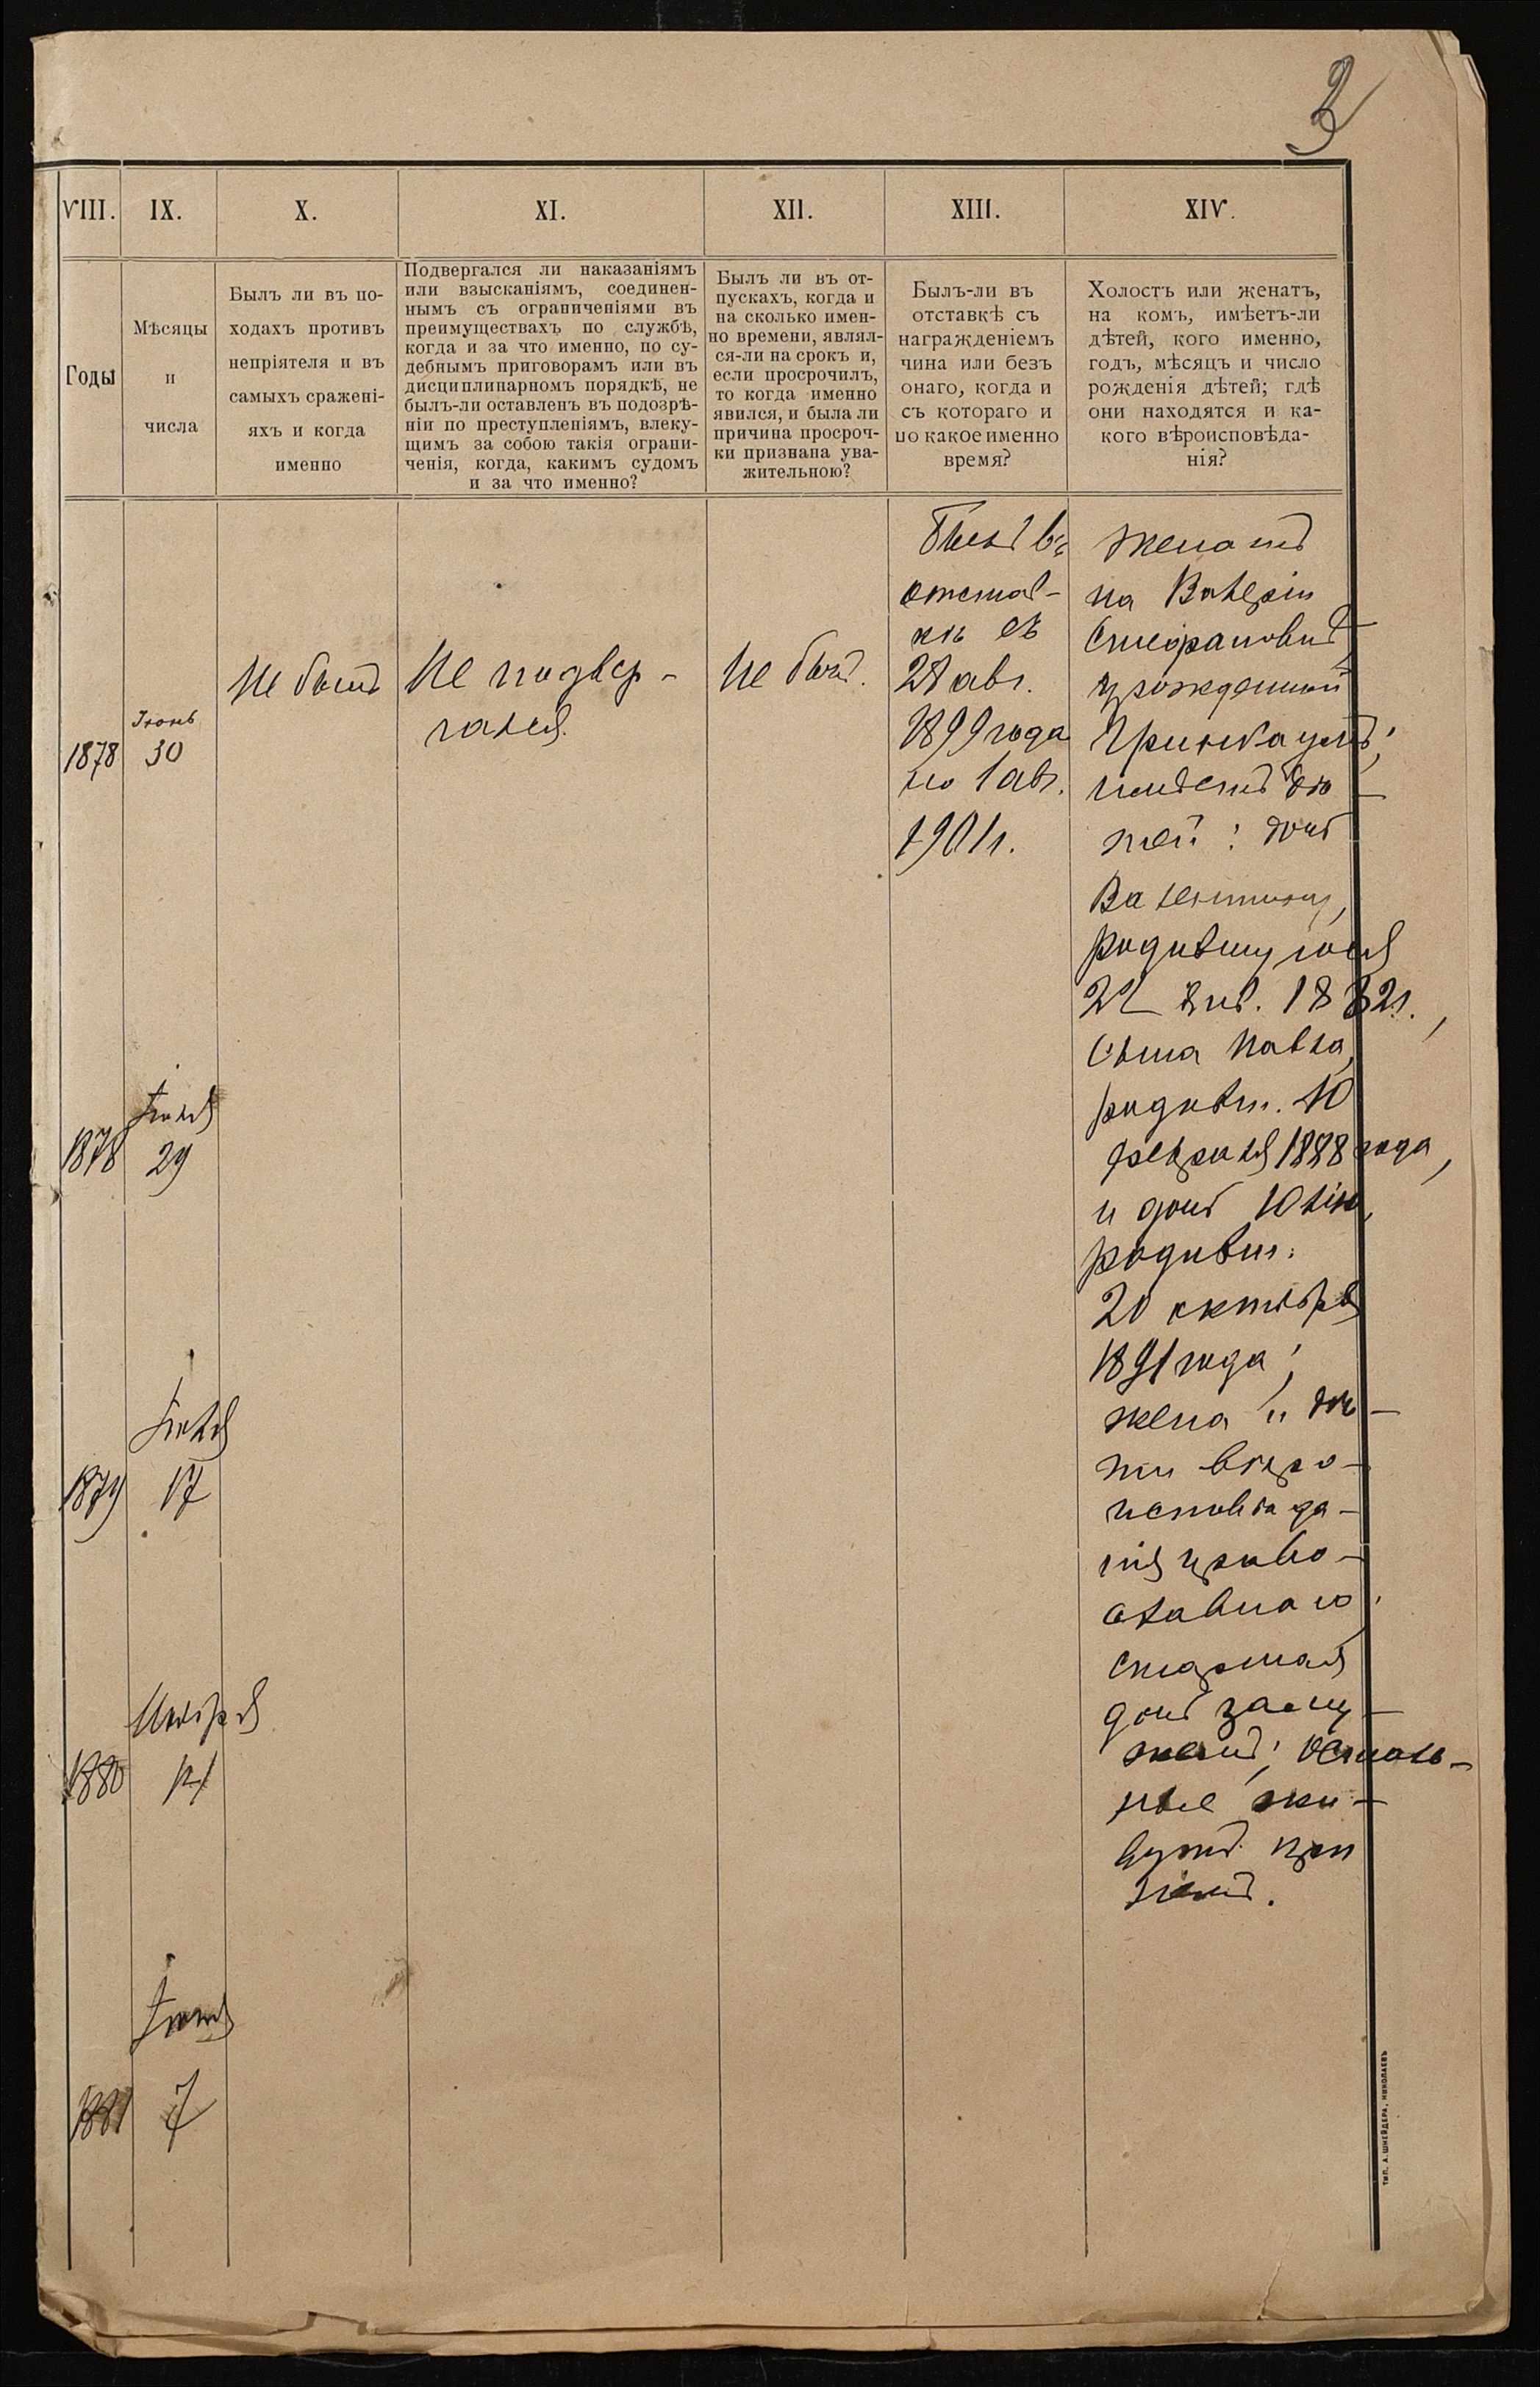 3
VIII.
IX.
X.
XI.
XII.
XIII.
XIV.
Годы
Мѣсяцы
и
числа
Былъ ли въ по-
ходахъ противъ
непріятеля и въ
самыхъ сражені-
яхъ и когда
именно
Подвергался ли наказаніямъ
или взысканіямъ, соединен-
нымъ съ ограниченіями въ
преимуществахъ по службѣ,
когда и за что именно, по су-
дебнымъ приговорамъ или въ
дисциплинарномъ порядкѣ, не
былъ-ли оставленъ въ подозрѣ-
ніи по преступленіямъ, влеку-
щимъ за собою такія ограни-
ченія, когда, какимъ судомъ
и за что именно?
Былъ ли въ от-
пускахъ, когда и
на сколько имен-
но времени, являл-
ся-ли на срокъ и,
если просрочилъ,
то когда именно
явился, и была ли
причина просроч-
ки признана ува-
жительною?
Былъ-ли въ
отставкѣ съ
награжденіемъ
чина или безъ
онаго, когда и
съ котораго и
по какое именно
время?
Холостъ или женатъ,
на комъ, имѣетъ-ли
дѣтей, кого именно,
годъ, мѣсяцъ и число
рожденія дѣтей; гдѣ
они находятся и ка-
кого вѣроисповѣда-
нія?
1878
Іюнь
30
1878
Іюля
29
1879
Іюля
17
1880
Ноября
1881
7
Не былъ
Не подвер-
гался.
Не былъ.
Былъ въ
отстав-
кѣ съ
28 авг.
1899 года
по 1 авг.
1901 г.
Женатъ
на Валеріи
Стефановнѣ,
урожденной
имѣетъ дѣ-
тей: дочь
Валентину,
родившуюся
22 янв. 1882 г.,
сына Павла,
родивш. 10
февраля 1888 года,
и дочь Юлію,
родивш.
20 октября
1891 года;
жена и дѣ-
ти вѣро-
исповѣда-
нія право-
славнаго;
старшая
дочь заму-
жемъ; осталь-
ные жи-
вутъ при
немъ.
ТИП. А. ШНЕЙДЕРА, НИКОЛАЕВЪ